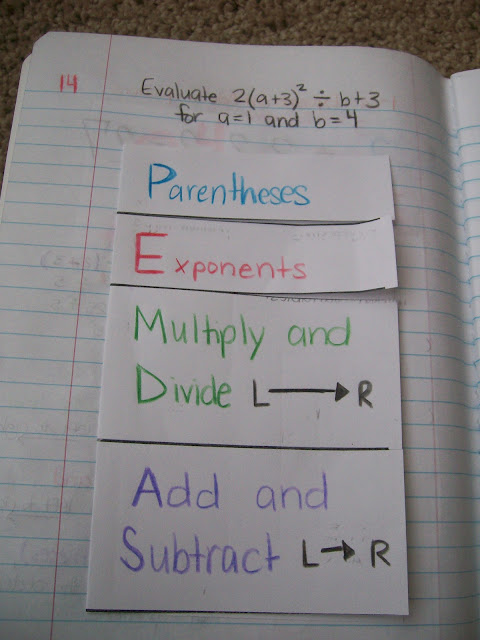 14
Evaluate 2(a+3)² ÷ b+3
for a=1 and b=4
Parentheses
Exponents
Multiply and
Divide L → R
Add and
Subtract L → R